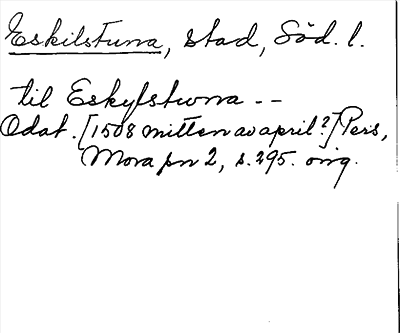 Eskilstuna, stad, Söd. l.
til Eskylstwna --
Odat. [1508 mitten av april?] Pers,
Mora pn 2, s. 295. orig.